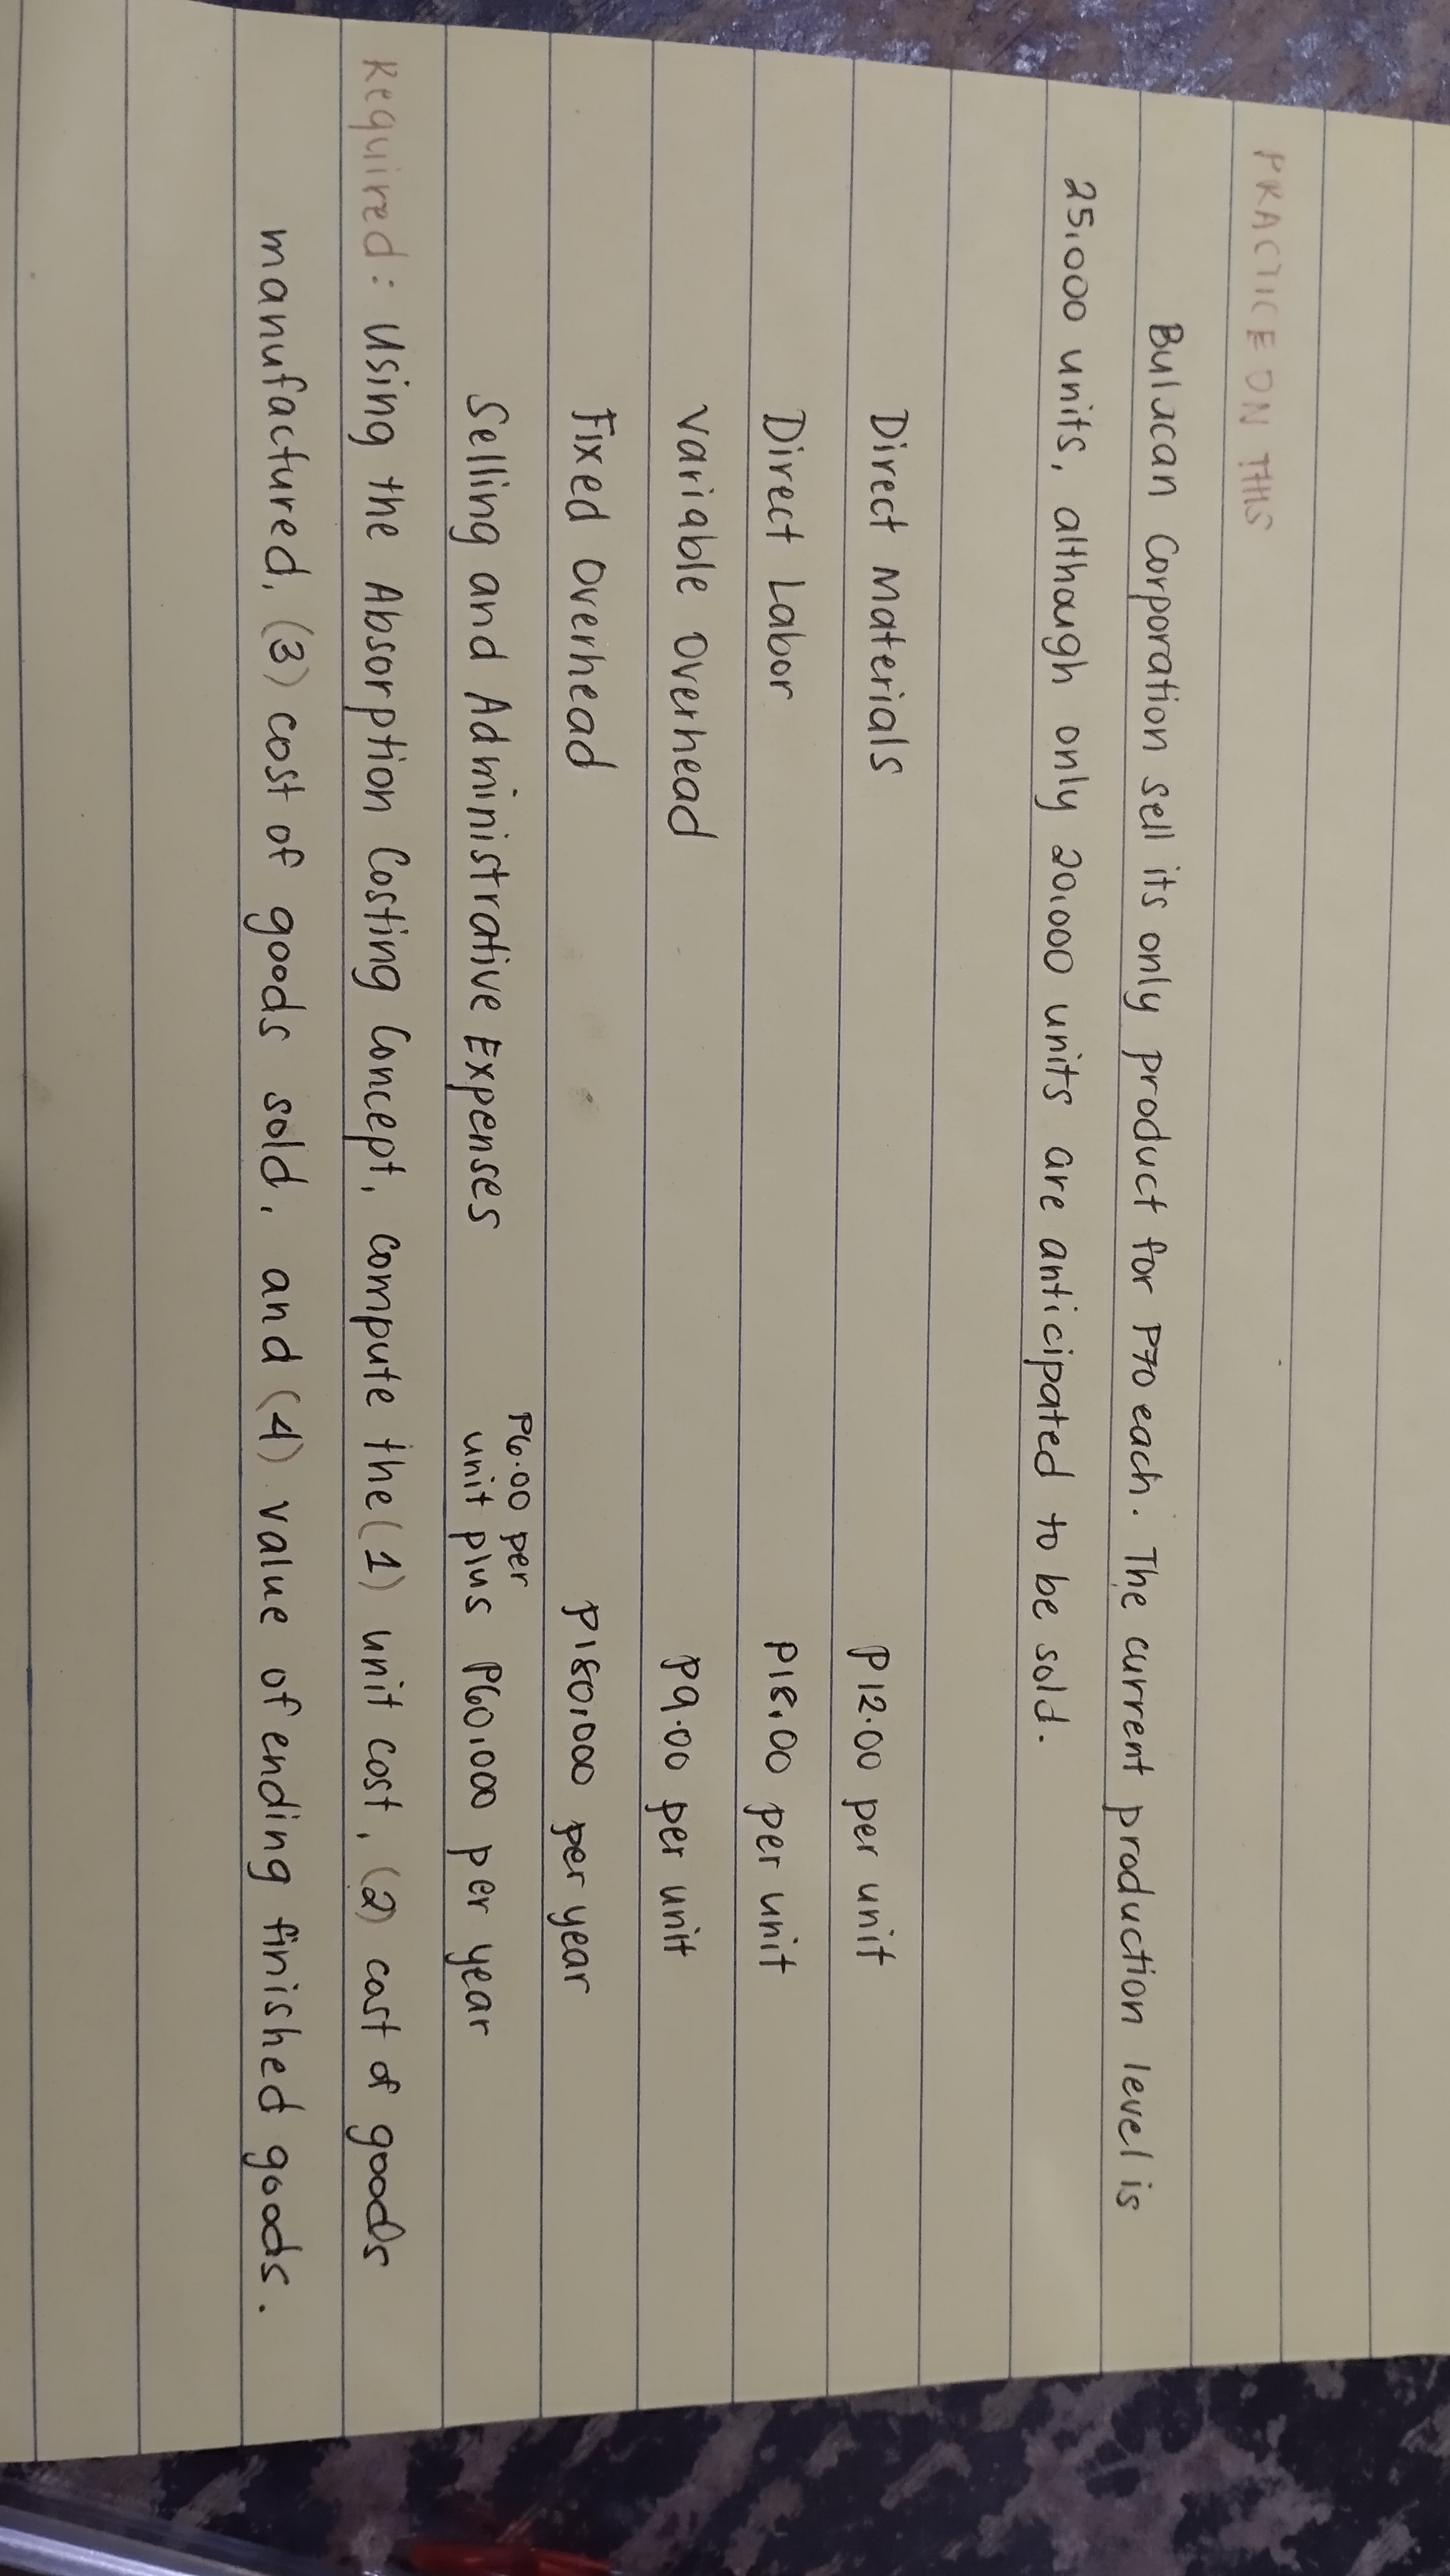 PRACTICE ON THIS
Bulacan Corporation sell its only product for P70 each. The current production level is
25,000 units, although only 20,000 units are anticipated to be sold.
Direct Materials P12.00 per unit
Direct Labor P18.00 per unit
Variable Overhead P9.00 per unit
Fixed Overhead P180,000 per year
P6.00 per
Selling and Administrative Expenses unit plus P60,000 per year
Required: Using the Absorption Costing Concept, compute the (1) unit cost, (2) cost of goods
manufactured, (3) cost of goods sold, and (4) value of ending finished goods.